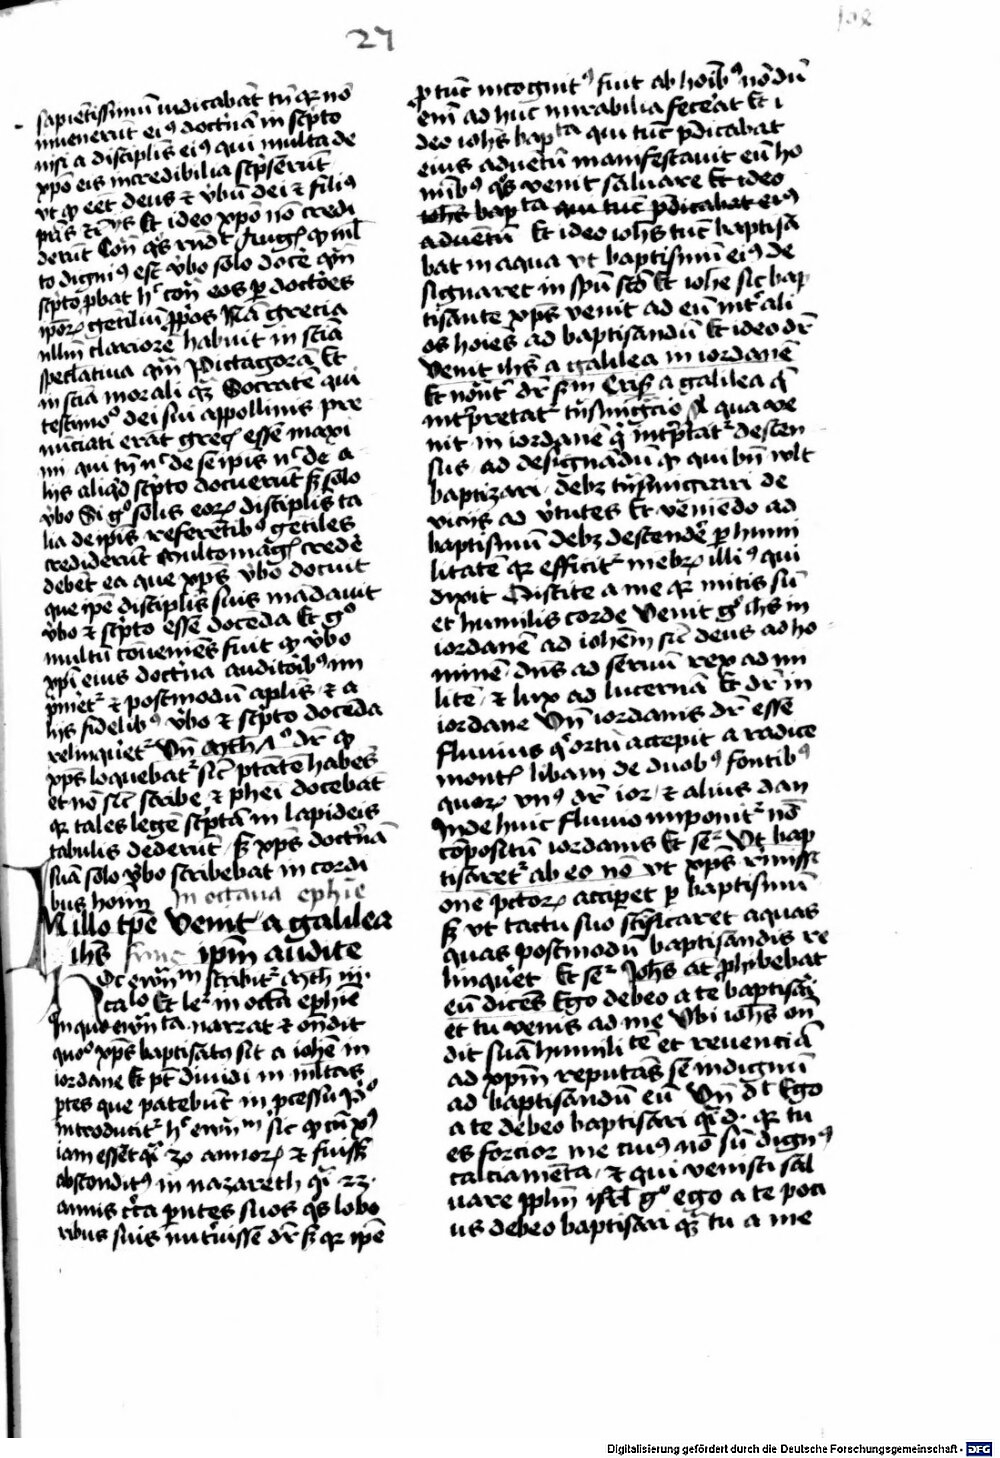 27
102
sapiẽtissimũ iudicabãt tñ qr nõ
inuenerũt eiꝰ doctⁱnã in scⁱpto
nisi a discipłis eiꝰ qui multa de
xp̃o eis incredibilia scⁱpserũt
vt ꝙ eẽt deus ⁊ v̾bũ dei ⁊ filiꝰ
Et ideo xp̃o nõ credi
derũt
to digniꝰ est v̾bo solo docẽ
scⁱpto ꝓbat hͨ eos ꝑ doctões
ip̃oꝝ gẽtiliũ Nã grecia
nllm̃ clariorẽ habuit in scĩa
speclatiua qm̃ Pictagorã Et
in scĩa morali qͣꝫ Socratẽ qui
testimoº dei sui appollinis pre
nũciati erãt greci essẽ maxi
mi qui tñ nͨ de seip̃is nͨ de a
lijs aliqͥd scⁱpto docuerũt sꝫ solo
v̾bo Si gº solis eoꝝ discipłis ta
lia de ip̃is referẽtibꝰ gẽtiles
crediderũt multomagꝭ credẽ
debẽt ea que xp̃s v̾bo docuit
que ip̃e discipłis suis mãdauit
v̾bo ⁊ scⁱpto essẽ docẽda Et gº
multũ cõueniẽs fuit ꝙ v̾bo
xp̃i eius doctⁱna auditõibꝰ im
pⁱmet᷑ ⁊ postmodũ apłis ⁊ a
lijs fidelibꝰ v̾bo ⁊ scⁱpto docẽda
relinquet᷑ Vñ math dr̃ ꝙ
xp̃s loquebat᷑ sic ptãtẽ habẽs
et nõ sic scribe ⁊ pħei docebãt
qr tales legẽ scⁱptã in lapideis
tabulis dederũt sꝫ xp̃s doctⁱnã
suã solo v̾bo scribebat in cordi
bus hoĩm in octaua ephie
In illo tp̃e Venit a galilea
ihs ip̃m audite
Hoc ewm̃ scribit᷑ math iij
calº Et leͬ in octã ephie
In quo ewͣ narrat ⁊ oñdit
quoº xp̃s baptisatꝰ sit a iohẽ in
iordane Et pt̃ diuidi in mltas
ptes que patebũt in ꝓcessu
introducit᷑ hͨ ewm̃ sic ꝙ cũ xp̃s
iam essẽt qͣsi 30 annoꝝ ⁊ fuissꝫ
absconditꝰ in nazareth qͣsi
annis cͥca pntes suos qͥs labo
ribus suis nutⁱuissẽ dr̃ sꝫ qr ip̃e
ꝓ tũc incognitꝰ fuit ab hoĩbꝰ nõdũ
em̃ ad huc mirabilia feceat Et i
deo iohs bapᵗᵃ qui tũc pdicabat
eius aduẽtũ manifestauit eũ ho
mĩbꝰ qͥs venit saluare Et ideo
iohs bapᵗᵃ qui tũc pdicabat eiꝰ
aduẽtũ Et ideo iohs tũc baptisa
bat in aqua vt baptismũ eiꝰ de
signaret in spũ scõ Et iohe sic bap
tisante xp̃s venit ad eũ int᷑ ali
os hoies ad baptisandũ Et ideo dr̃
Venit ihs a galilea in iordanẽ
Et notⁿt dr̃ scm a galilea qͥ
intpretat᷑ tⁿsmigͣcio A qua ve
nit in iordanẽ qͥ intpłat᷑ descen
sus ad designãdũ ꝙ qui bñ vlt
baptizari debꝫ tⁿsmigrari de
vicijs ad v̾tutes Et veniẽdo ad
baptismũ debꝫ descendẽ ꝑ humi
litatẽ qr efficit᷑ mẽbꝝ illiꝰ qui
dixit Discite a me qr mitis sũ
et humilis corde Venit gº ihs in
iordanẽ ad iohẽm sic deus ad ho
minẽ dñs ad seruũ rex ad mi
litẽ ⁊ lux ad lucernã Et dr̃ in
iordane Vñ iordanis dr̃ essẽ
fluuius qͥ ortũ accepit a radice
montꝭ libani de duobꝰ fontibꝰ
quoꝝ vnꝰ dr̃ ior ⁊ alius dan
Inde huic fluuio imponit᷑ nõ
cõpositũ iordanis Et seͬ Vt bap
tisaret᷑ ab eo nõ vt xp̃s rimiss
onẽ pctoꝝ accipet ꝑ baptismũ
sꝫ vt tactu suo scificaret aquas
quas postmodũ baptisandis re
linquet Et seͬ Johs at̃ ꝓhibebat
eũ dicẽs Ego debeo a te baptisari
et tu venis ad me Vbi iohs on
dit suã humilitẽ et reuenciã
ad xp̃m reputãs se indignũ
ad baptisandũ eũ Vñ dt̃ Ego
a te debeo baptisari qͣsi d. qr tu
es forcior me cuiꝰ nõ sũ dignꝰ
calciamẽta ⁊ qui venisti sal
uare ppłm isrł gº ego a te poci
us debeo baptisari qͣꝫ tu a me
Digitalisierung gefördert durch die Deutsche Forschungsgemeinschaft - DFG